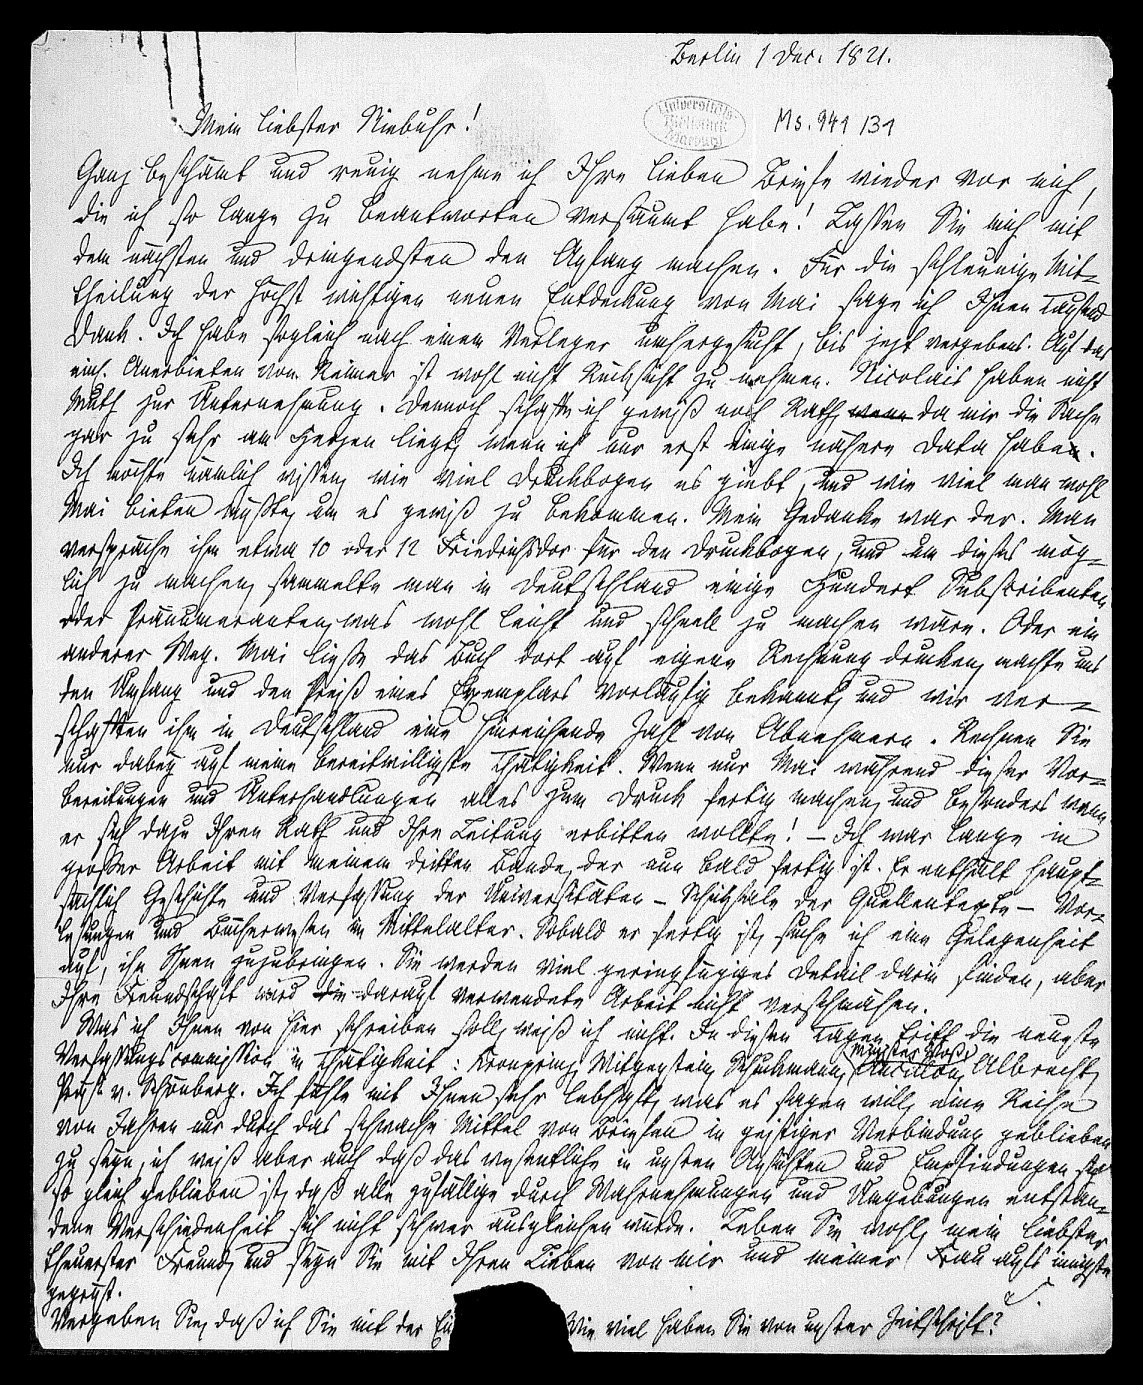 Berlin 1 Dec. 1821.
Universitäts-
Bibliothek
Marburg
Ms. 941 /31
Mein liebster Niebuhr!
Ganz beschämt und reuig nehme ich Ihre lieben Briefe wieder vor mich,
die ich so lange zu beantworten versäumt habe! Lassen Sie mich mit
dem nächsten und dringendsten den Anfang machen. Für die schleunige Mit-
theilung der höchst wichtigen neuen Entdeckung von Mai sage ich Ihnen tausend
Dank. Ich habe sogleich nach einem Verleger umhergesucht, bis jezt vergebens. Auf das
Anerbieten von Reimer ist wohl nicht Rücksicht zu nehmen. Nicolais haben nicht
Muth zur Unternehmung. Dennoch schaffe ich gewiß noch Rath, wenn da mir die Sache
gar zu sehr am Herzen liegt, wenn ich nur erst einige nähere Data habe.
Ich möchte nämlich wissen, wie viel Druckbogen es giebt, und wie viel man wohl
Mai bieten müßte, um es gewiß zu bekommen. Mein Gedanke war der. Man
verspräche ihm etwa 10 oder 12 Friedrichsdor für den Druckbogen, und um dieses mög-
lich zu machen, sammelte man in Deutschland einige Hundert Subscribenten
oder Pränumeranten, was wohl leicht und schnell zu machen wäre. Oder ein
anderer Weg. Mai ließe das Buch dort auf eigene Rechnung drucken, machte uns
den Umfang und den Preiß eines Exemplars vorläufig bekannt, und wir ver-
schafften ihm in Deutschland eine hinreichende Zahl von Abnehmern. Rechnen Sie
nur dabey auf meine bereitwilligste Thätigkeit. Wenn nur Mai während dieser Vor-
bereitungen und Unterhandlungen alles zum Druck fertig machen, und besonders wenn
er sich dazu Ihren Rath und Ihre Leitung erbitten wollte! – Ich war lange in
großer Arbeit mit meinem dritten Bande, der nun bald fertig ist. Er enthält haupt-
sächlich Geschichte und Verfassung der Universitäten – Schicksale der Quellentexte – Vor-
lesungen und Bücherwesen im Mittelalter. Sobald er fertig ist, suche ich eine Gelegenheit
auf, ihn Ihnen zuzubringen. Sie werden viel geringfügiges Detail darin finden, aber
Ihre Freundschaft wird die darauf verwendete Arbeit nicht verschmähen.
Was ich Ihnen von hier schreiben soll, weiß ich nicht. In diesen Tagen tritt die neueste
Verfassungscommission in Thätigkeit: Kronprinz, Witgenstein, Schukmann, Ancillon, Albrecht,
Minister Voß,
Präs. v. Schönberg. Ich fühle mit Ihnen sehr lebhaft, was es sagen will, eine Reihe
von Jahren nur durch das schwache Mittel von Briefen in geistiger Verbindung geblieben
zu seyn, ich weiß aber auch daß das wesentliche in unsren Ansichten und Empfindungen sich
so gleich geblieben ist, daß alle zufällige durch Wahrnehmungen und Umgebungen entstan-
dene Verschiedenheit sich nicht schwer ausgleichen würde. Leben Sie wohl, mein liebster
theuerster Freund, und seyn Sie mit Ihren Lieben von mir und meiner Frau aufs innigste
gegrüßt.
S.
Vergeben Sie, daß ich Sie mit der Wie viel haben Sie von unsrer Zeitschrift?